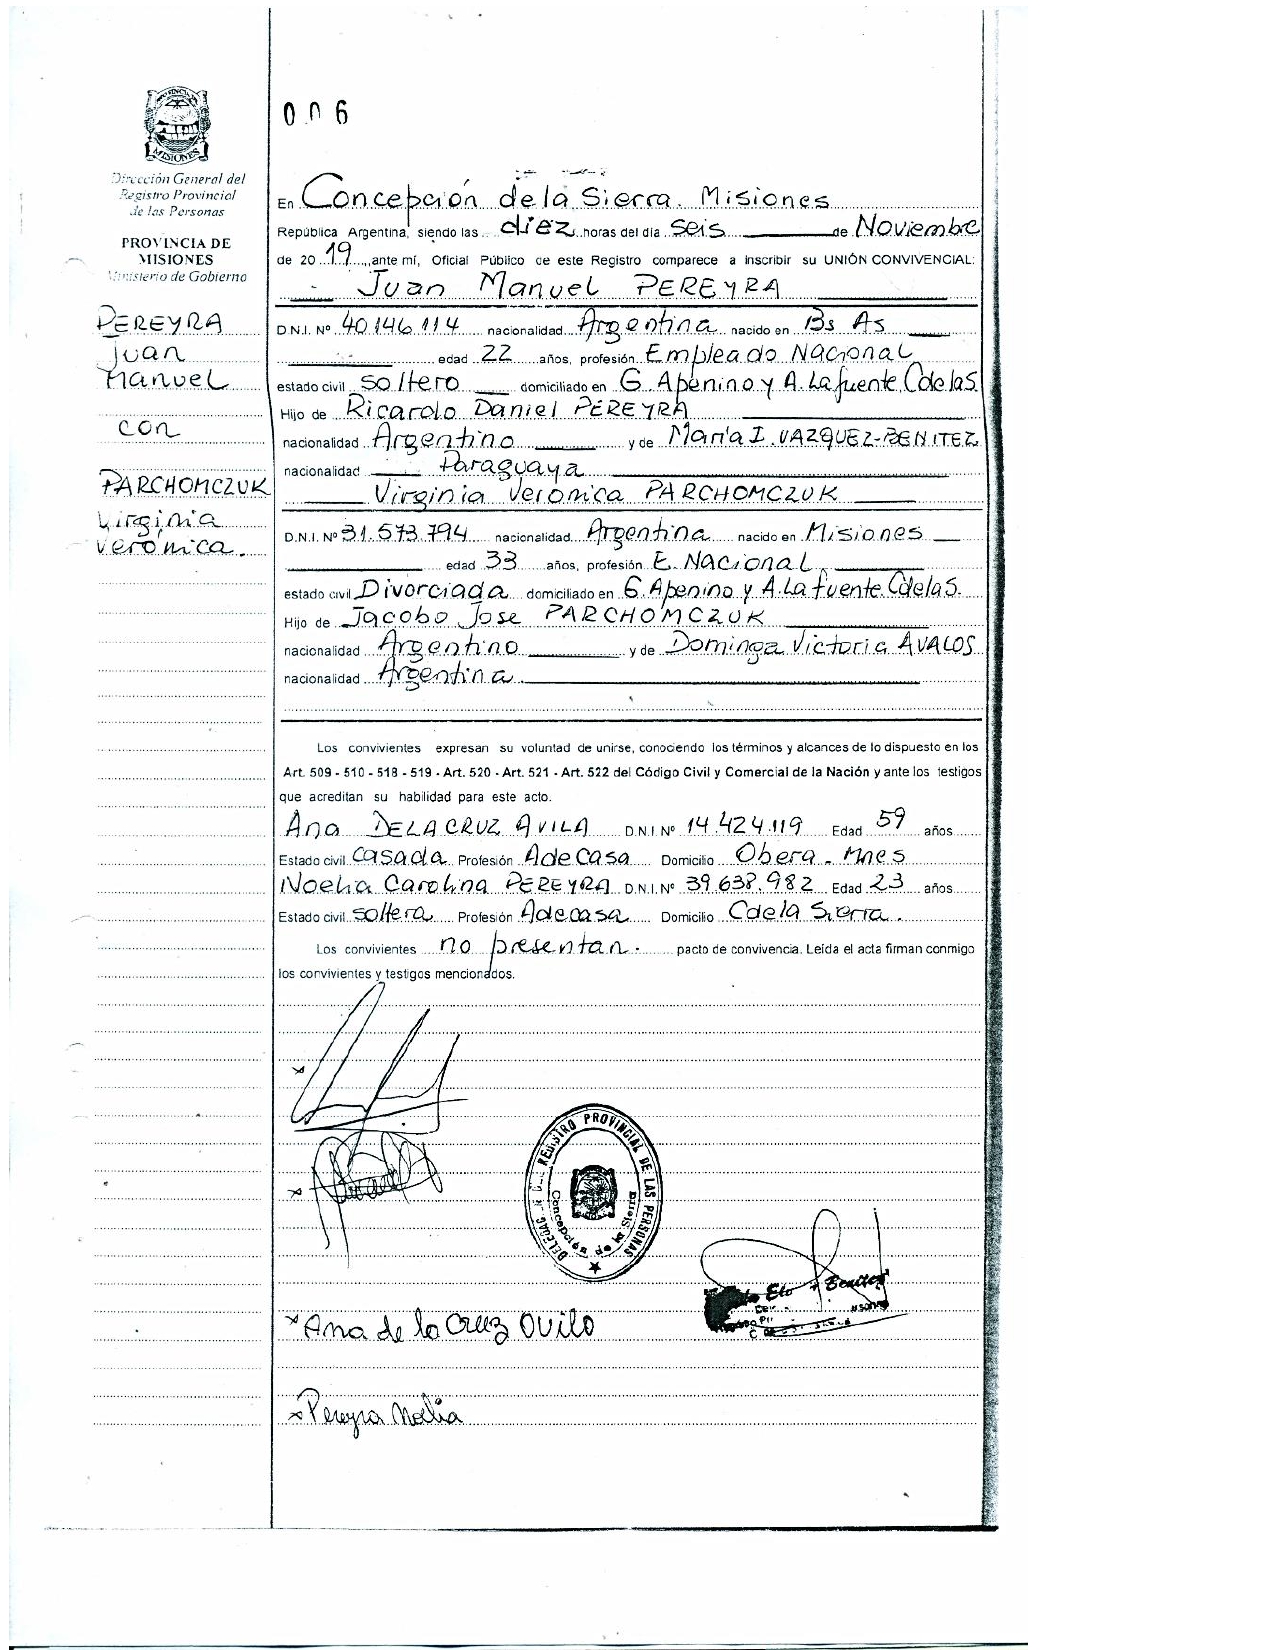 006
MISIONES
Dirección General del
Registro Provincial
de las Personas
PROVINCIA DE
MISIONES
Ministerio de Gobierno
PEREYRA
Juan
Manuel
con
PARCHOMCZUK
Virginia
Verónica.
En Concepción de la Sierra. Misiones
República Argentina, siendo las diez horas del día seis de Noviembre
de 2019, ante mí, Oficial Público de este Registro comparece a inscribir su UNIÓN CONVIVENCIAL:
Juan Manuel PEREYRA
D.N.I. Nº 40.146.114 nacionalidad Argentina nacido en Bs As
edad 22 años, profesión Empleado Nacional
estado civil soltero domiciliado en G. Apenino y A. Lafuente. C de las.
Hijo de Ricardo Daniel PEREYRA
nacionalidad Argentino y de María I. VAZQUEZ-BENITEZ
nacionalidad Paraguaya
Virginia Veronica PARCHOMCZUK
D.N.I. Nº 31.573.794 nacionalidad Argentina nacido en Misiones
edad 33 años, profesión E. Nacional
estado civil Divorciada domiciliado en G. Apenino y A. La fuente. C de la S.
Hijo de Jacobo Jose PARCHOMCZUK
nacionalidad Argentino y de Dominga Victoria AVALOS
nacionalidad Argentina
Los convivientes expresan su voluntad de unirse, conociendo los términos y alcances de lo dispuesto en los
Art. 509 - 510 - 518 - 519 - Art. 520 - Art. 521 - Art. 522 del Código Civil y Comercial de la Nación y ante los testigos
que acreditan su habilidad para este acto.
Ana DE LA CRUZ AVILA D.N.I. Nº 14.424.119 Edad 59 años
Estado civil Casada Profesión A de Casa Domicilio Obera - Mnes
Noelia Carolina PEREYRA D.N.I. Nº 39.638.982 Edad 23 años
Estado civil soltera Profesión A de casa Domicilio C de la Sierra.
Los convivientes no presentan. pacto de convivencia. Leída el acta firman conmigo
los convivientes y testigos mencionados.
REGISTRO PROVINCIAL DE LAS PERSONAS
Concepción de la Sierra
Benitez
Ana de la Cruz Ovilo
Pereyra Noelia